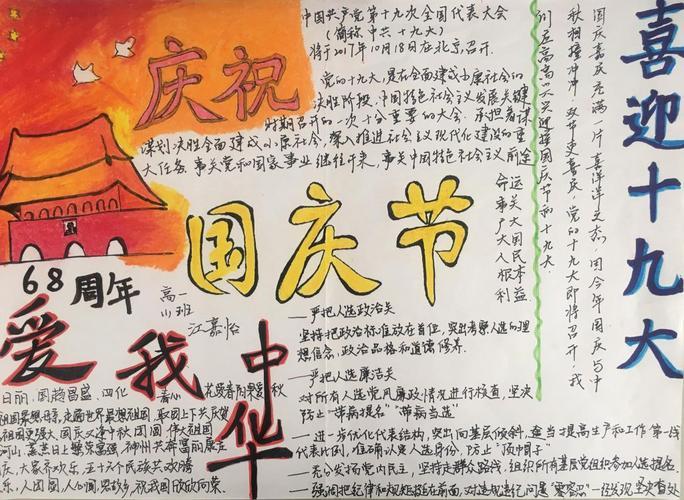 庆祝
国庆节
68周年
爱我中华
高一
(11)班
江嘉怡
中国共产党第十九次全国代表大会
(简称中共十九大)
将于2017年10月18日在北京召开.
党的十九大,是在全面建成小康社会的
决胜阶段、中国特色社会主义发展关键
时期召开的一次十分重要的大会,承担着谋
划决胜全面建成小康社会、深入推进社会主义现代化建设的重
大任务,事关党和国家事业继往开来,事关中国特色社会主义前途
命运
事关
广大
人民
根本
利益
喜迎十九大
国庆嘉庆充满一片喜洋洋之态,因今年国庆与中
秋相撞
双节更喜庆,党的十九大即将召开,我
们应高高兴兴迎接国庆节和十九大
—严把人选政治关
坚持把政治标准放在首位,突出考察人选的理
想信念,政治品格和道德修养.
—严把人选廉洁关
对所有人选党风廉政情况进行核查,坚决
防止"带病提名""带病当选"
—进一步优化代表结构,突出向基层倾斜,适当提高生产和工作第一线
代表比例,准确认定人选身份,防止"顶帽子"
—充分发扬党内民主,坚持走群众路线,组织所有基层党组织参加人选提名.
—强调把纪律和规矩挺在前面,对违规违纪问题"零容忍"一经发现坚决查处
日丽,国超昌盛,四化
祖国更强大,国庆又逢中秋团圆,伟大祖国
神州共奔富丽康庄
大家齐欢乐,五十六个民族共欢腾
祝我国欣欣向荣